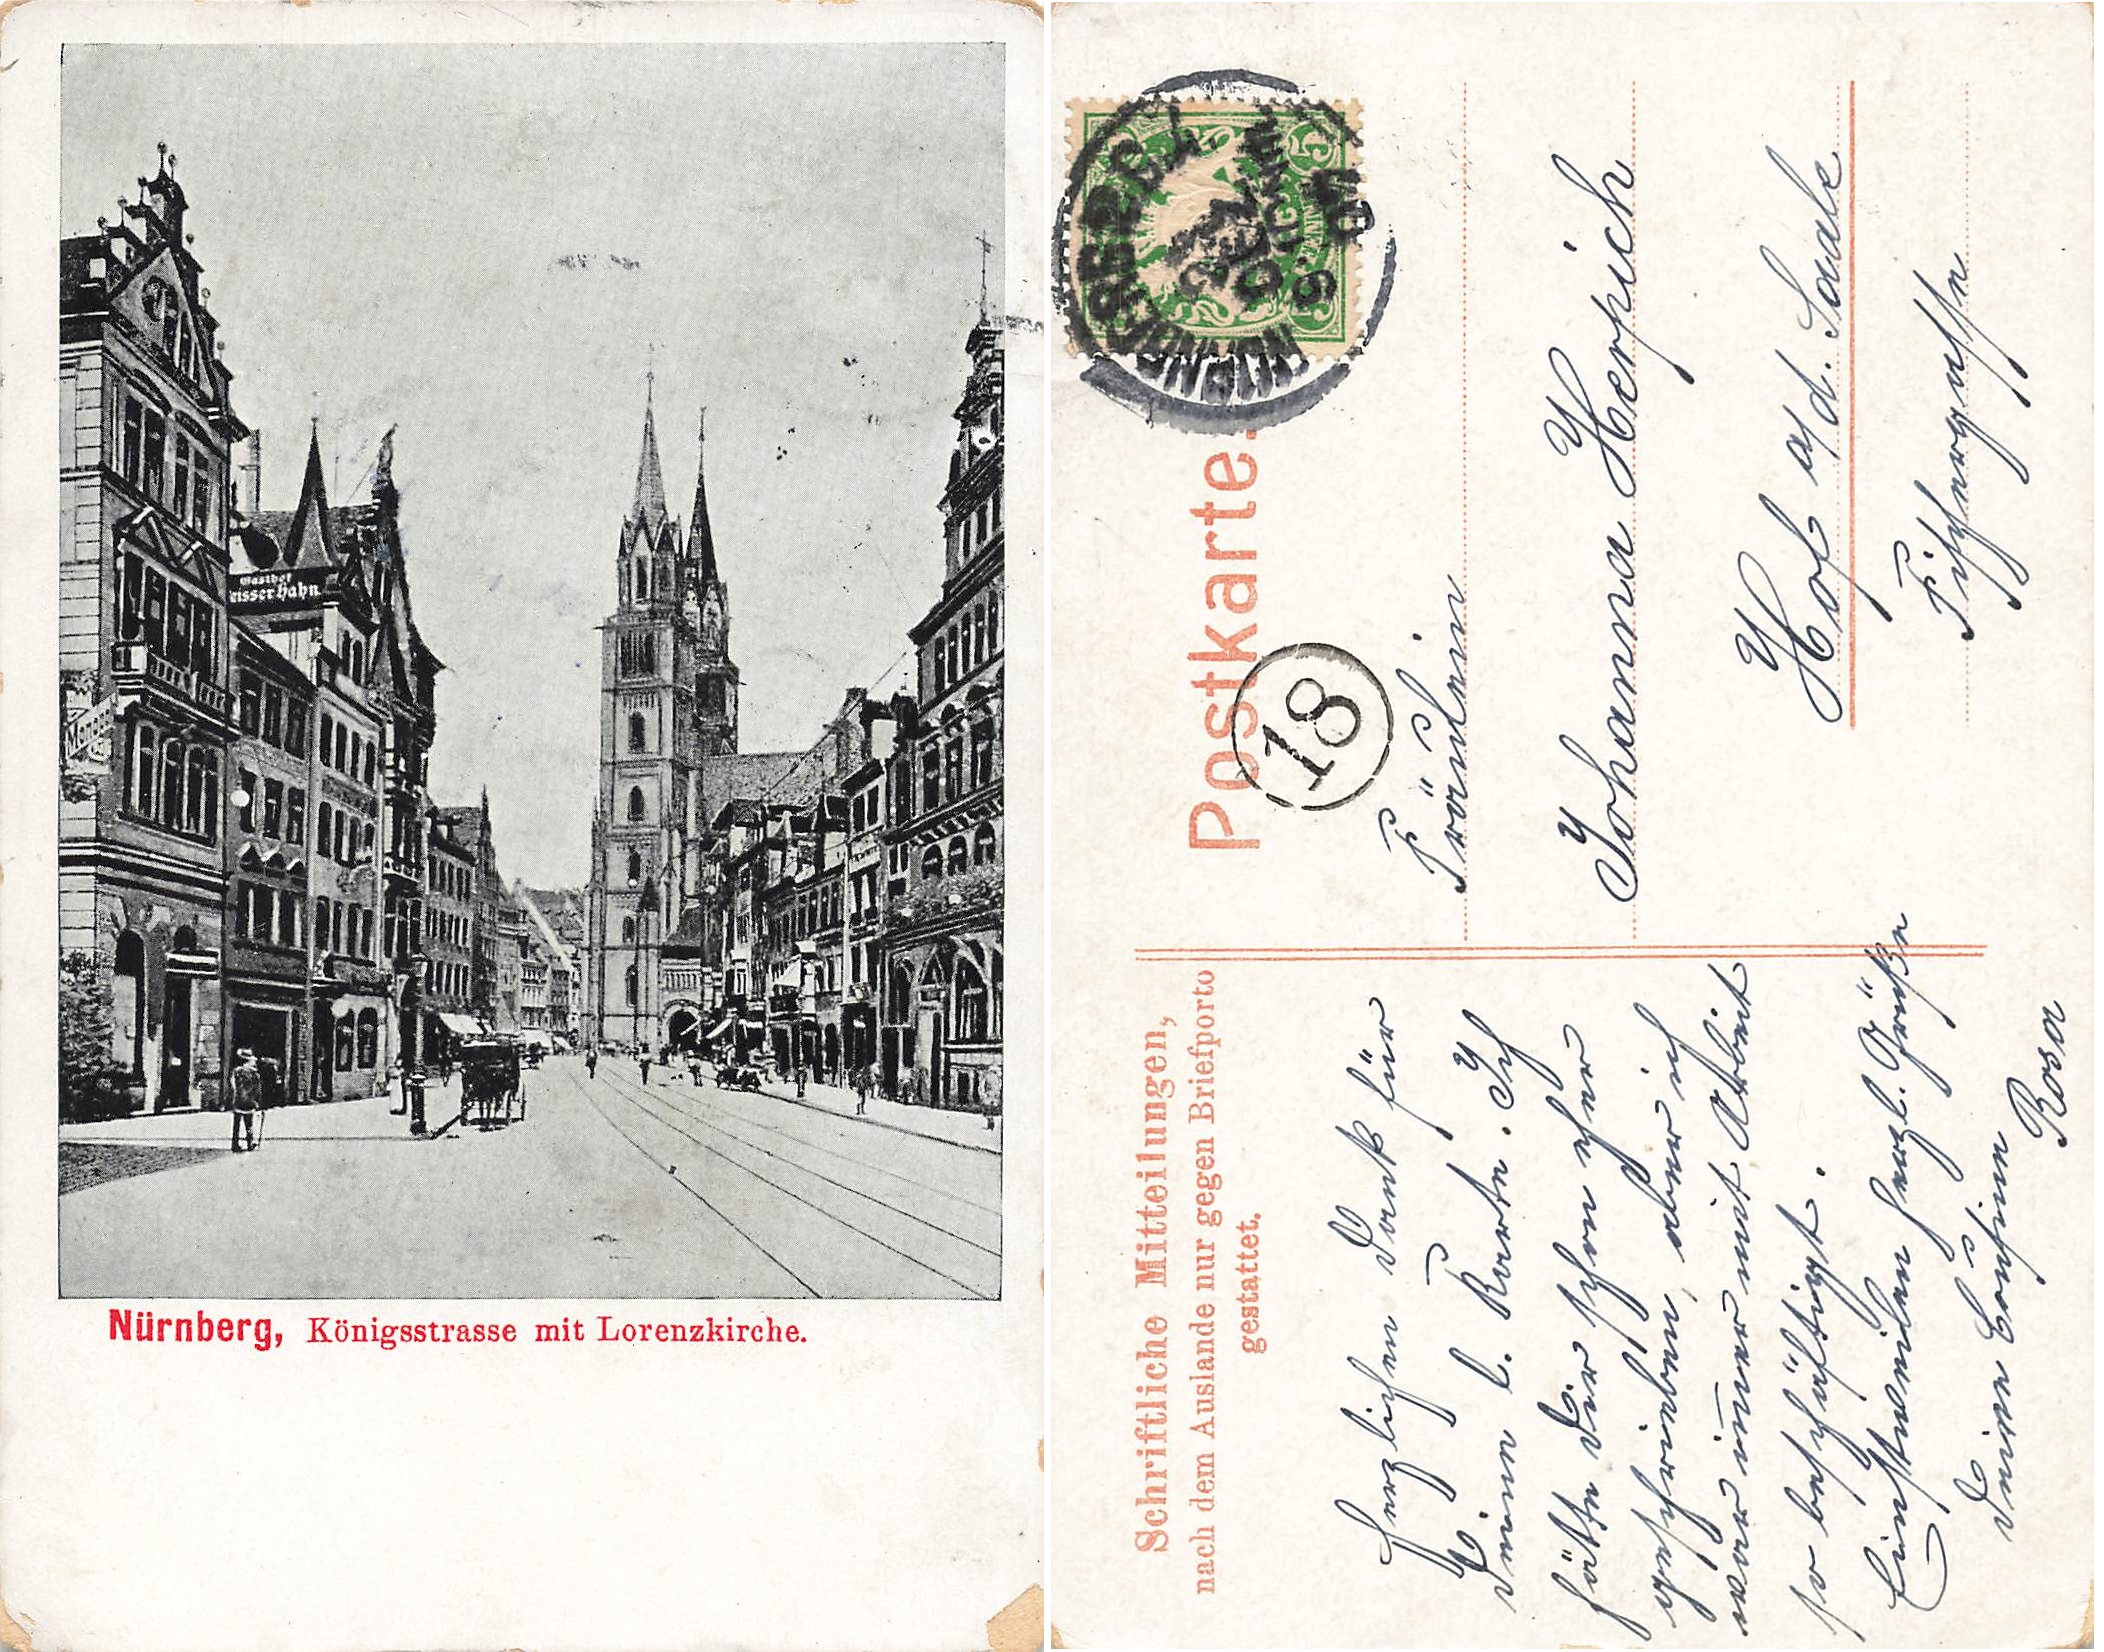 Gasthof
eisser Hahn
Nürnberg, Königsstrasse mit Lorenzkirche.
5
NUERNBERG 2
18
Postkarte.
Fräulein
Johanna Herpich
Hof a/d. Saale
Fischergasse
Schriftliche Mitteilungen,
nach dem Auslande nur gegen Briefporto
gestattet.
Herzlichen Dank für
Deine l. Karte. Ich
hätte Dir schon eher
geschrieben, aber ich
war im̅er mit Arbeit
so beschäftigt.
Einstweilen herzl. Grüße
Deine Cousine
Rosa